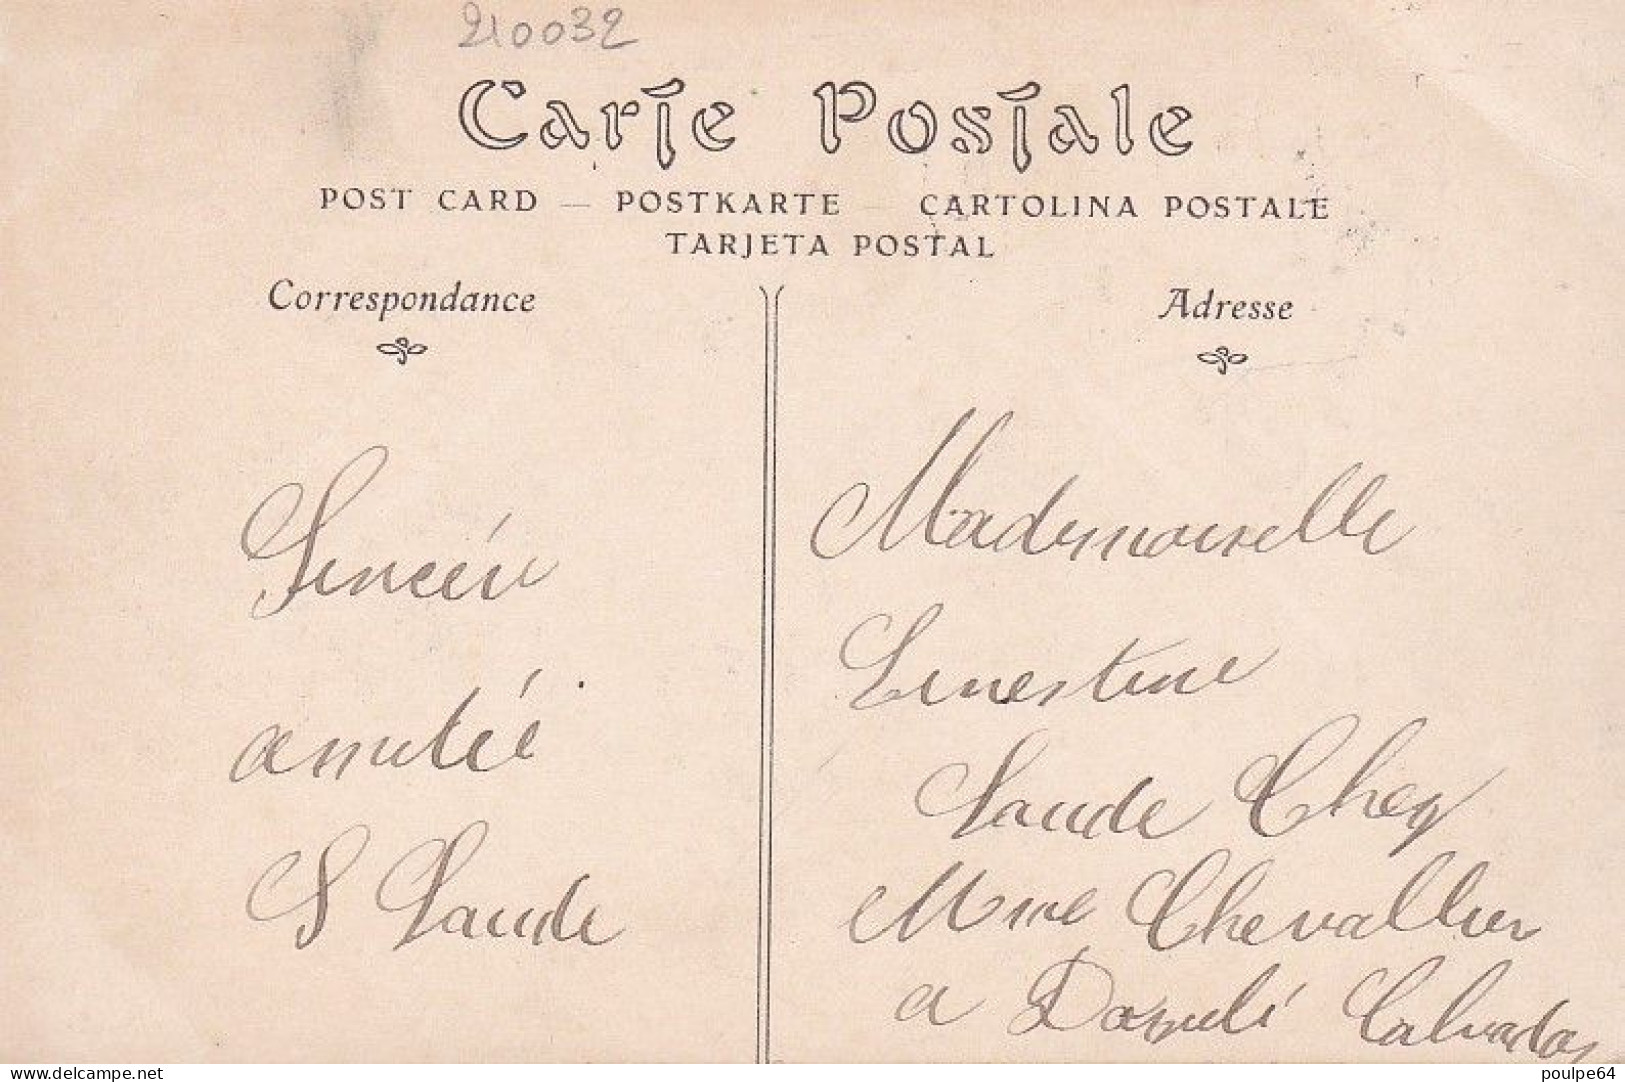 210032
Carte Postale
POST CARD — POSTKARTE — CARTOLINA POSTALE
TARJETA POSTAL
Correspondance
Adresse
Sincère
amitié
S Laude
Mademoiselle
Ernestine
Laude Chez
Mme Chevallier
a Dozulé Calvados
www.delcampe.net
poulpe64